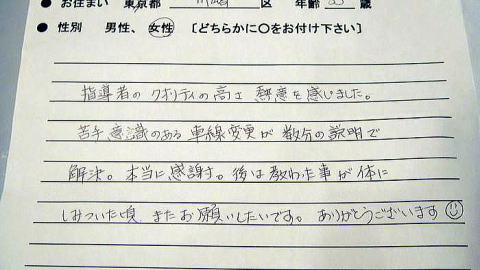 ● お住まい 東京都 区 年齢 歳
● 性別 男性、 女性 〔どちらかに〇をお付け下さい〕
指導者の クオリティの高さ 熱意を感じました。
苦手意識のある 車線変更が 数分の説明で
解決。本当に感謝す。後は教わた事が 体に
しみついた頃 またお願いしたいです。ありがとうございます